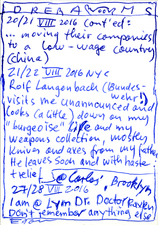 DREAMS
20/21 VIII 2016 cont'ed:
... moving their companies
to a low-wage country
(China)
21/22 VIII 2016 NYC
Rolf Langenbach (Bundes-
wehr)
visits me unannounced and
looks (a little) down on my
"burgeoise" life and my
weapons collection, mostly
knives and axes from my father
He leaves soon and with haste
+ relief
@ Carlos', Brooklyn
27/28 VIII 2016
I am @ Lyon Dr. Doctor
Don't remember anything else